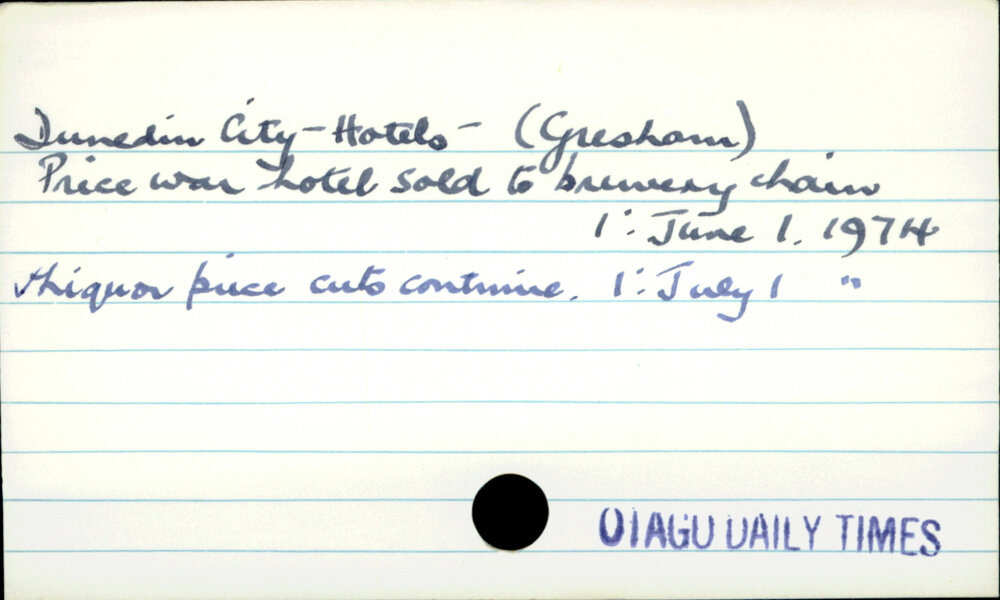 Dunedin City - Hotels - (Gresham)
Price war hotel sold to brewery chain
1: June 1. 1974
Liquor price cuts continue. 1: July 1 "
OTAGO DAILY TIMES